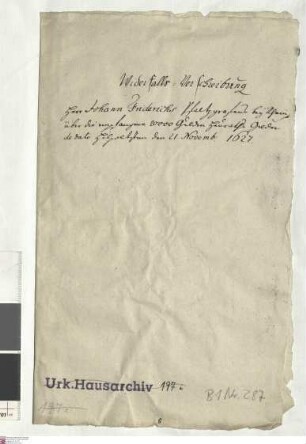 Widerfalls Verschreibung
Herr Johann Friderichs Pfaltzgrafens bey Rhein
über die empfangene 20000 Gulden Heuraths Gelder
de dato Hilpoltstein den 21 Novemb 1627
Urk.Hausarchiv 197
B1 Nr. 287
197